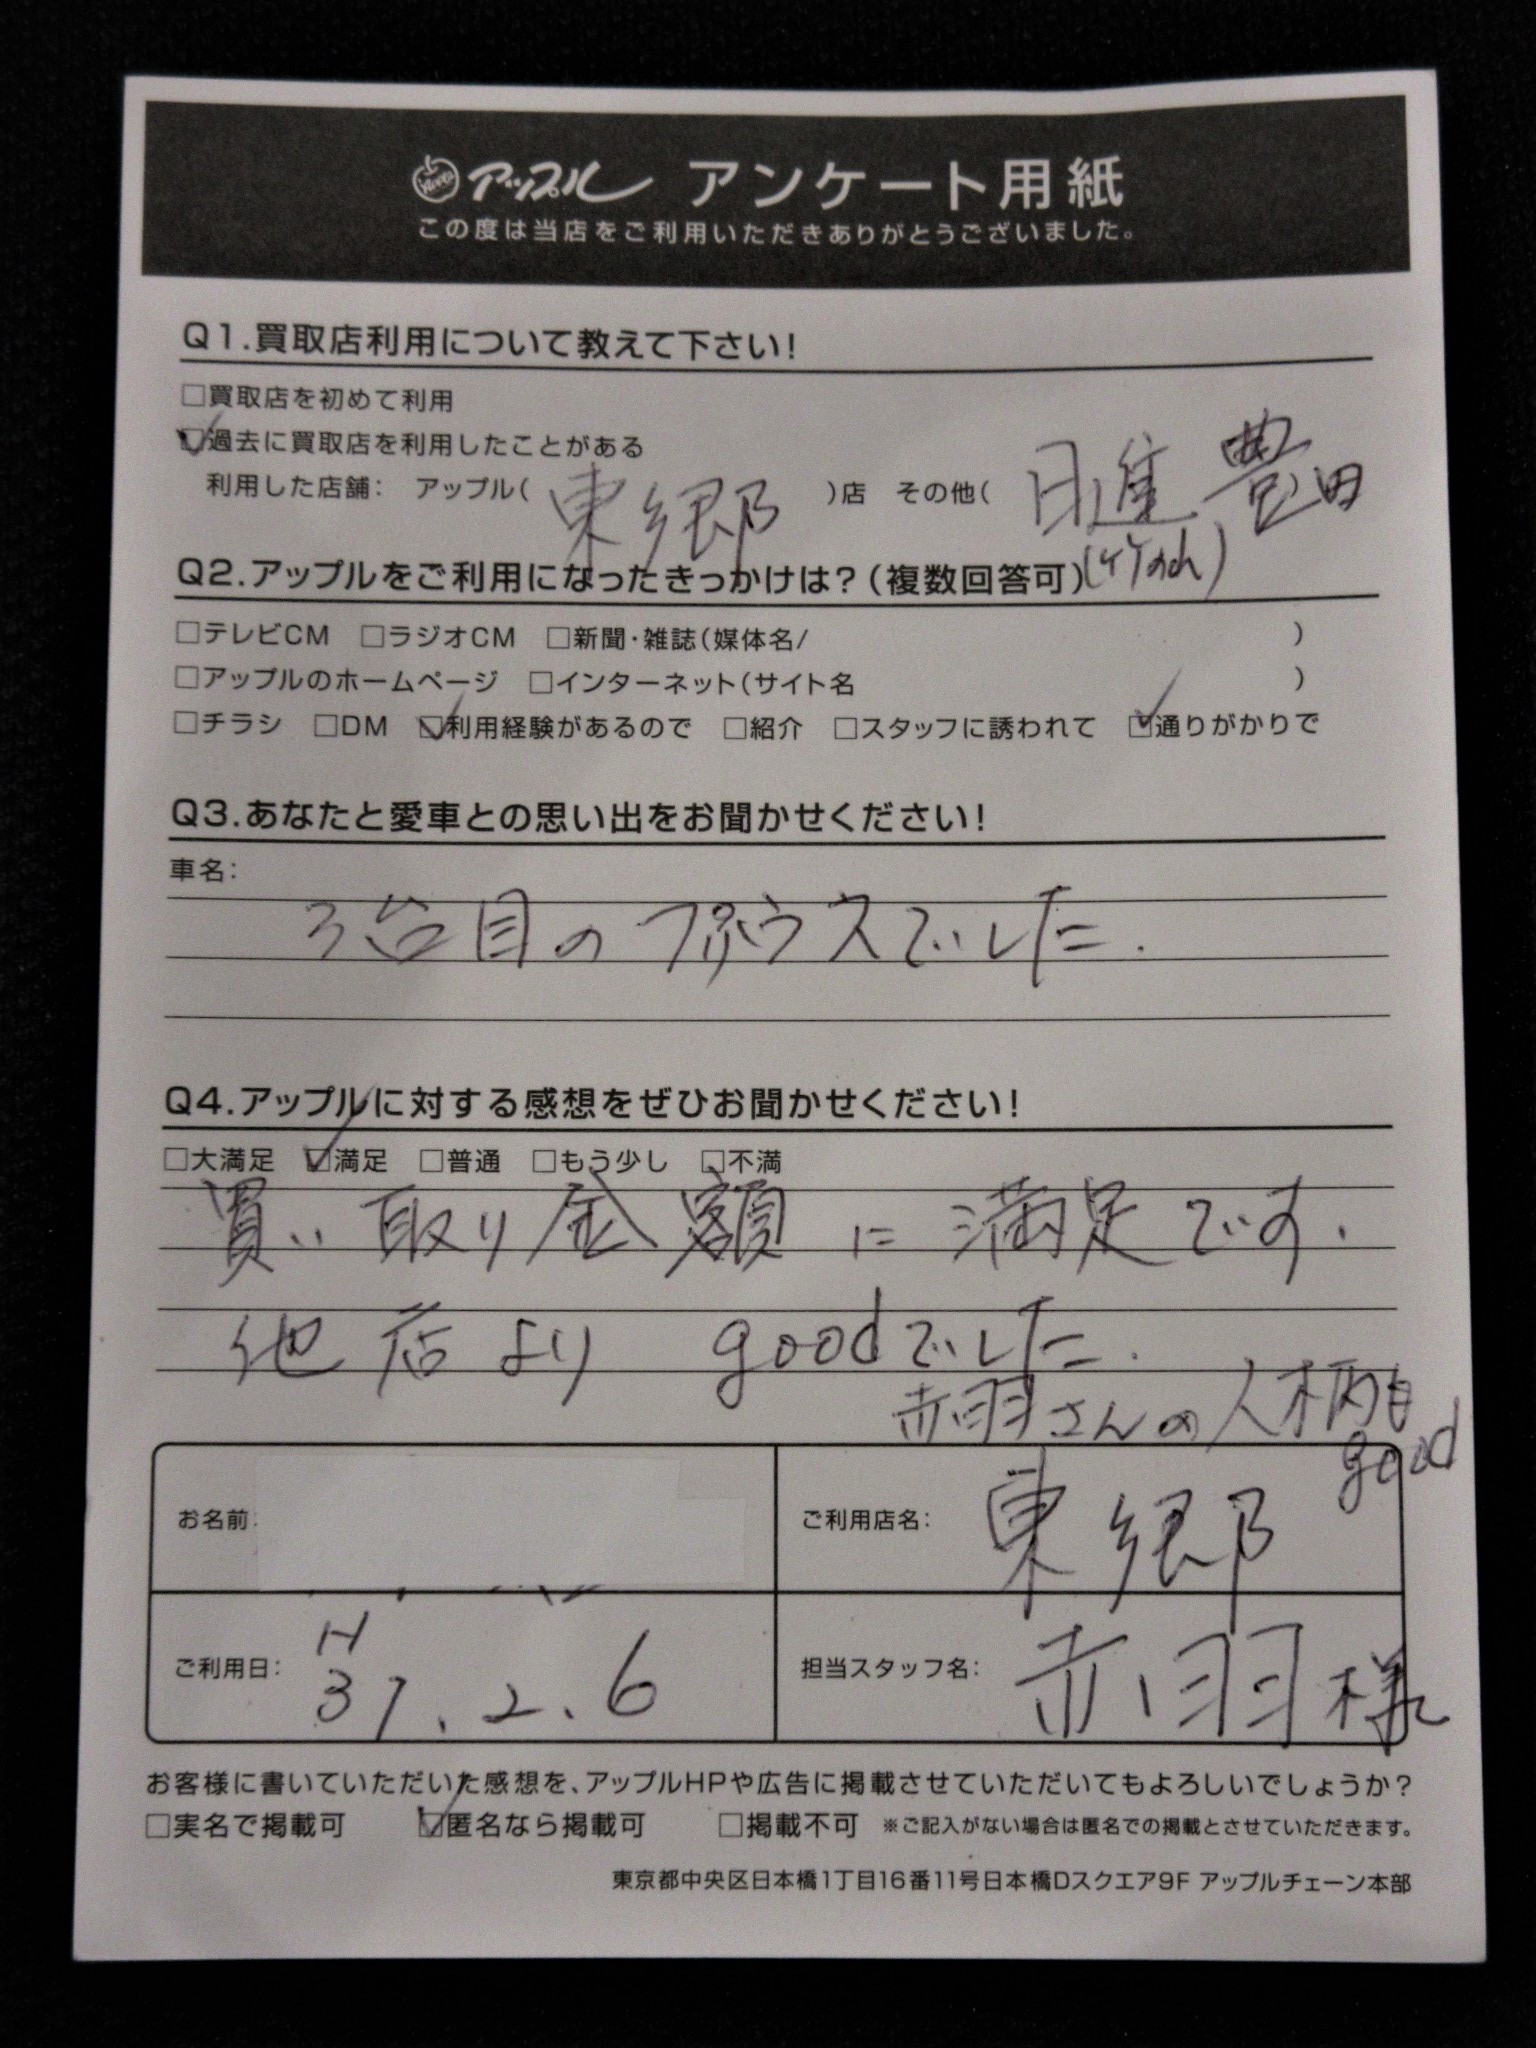 アップル アンケート用紙
この度は当店をご利用いただきありがとうございました。
Q1.買取店利用について教えて下さい!
□買取店を初めて利用
☑過去に買取店を利用したことがある
利用した店舗: アップル( 東郷 )店 その他( 日進 豊田
Q2.アップルをご利用になったきっかけは?(複数回答可)
□テレビCM □ラジオCM □新聞・雑誌(媒体名/ )
□アップルのホームページ □インターネット(サイト名 )
□チラシ □DM ☑利用経験があるので □紹介 □スタッフに誘われて ☑通りがかりで
Q3.あなたと愛車との思い出をお聞かせください!
車名:
3台目のプリウスでした.
Q4.アップルに対する感想をぜひお聞かせください!
□大満足 ☑満足 □普通 □もう少し □不満
買い取り金額に満足です.
他店より goodでした.
赤羽さんの人柄も
good
お名前: ご利用店名: 東郷
ご利用日: H 31.2.6 担当スタッフ名: 赤羽様
お客様に書いていただいた感想を、アップルHPや広告に掲載させていただいてもよろしいでしょうか?
□実名で掲載可 ☑匿名なら掲載可 □掲載不可 ※ご記入がない場合は匿名での掲載とさせていただきます。
東京都中央区日本橋1丁目16番11号日本橋Dスクエア9F アップルチェーン本部